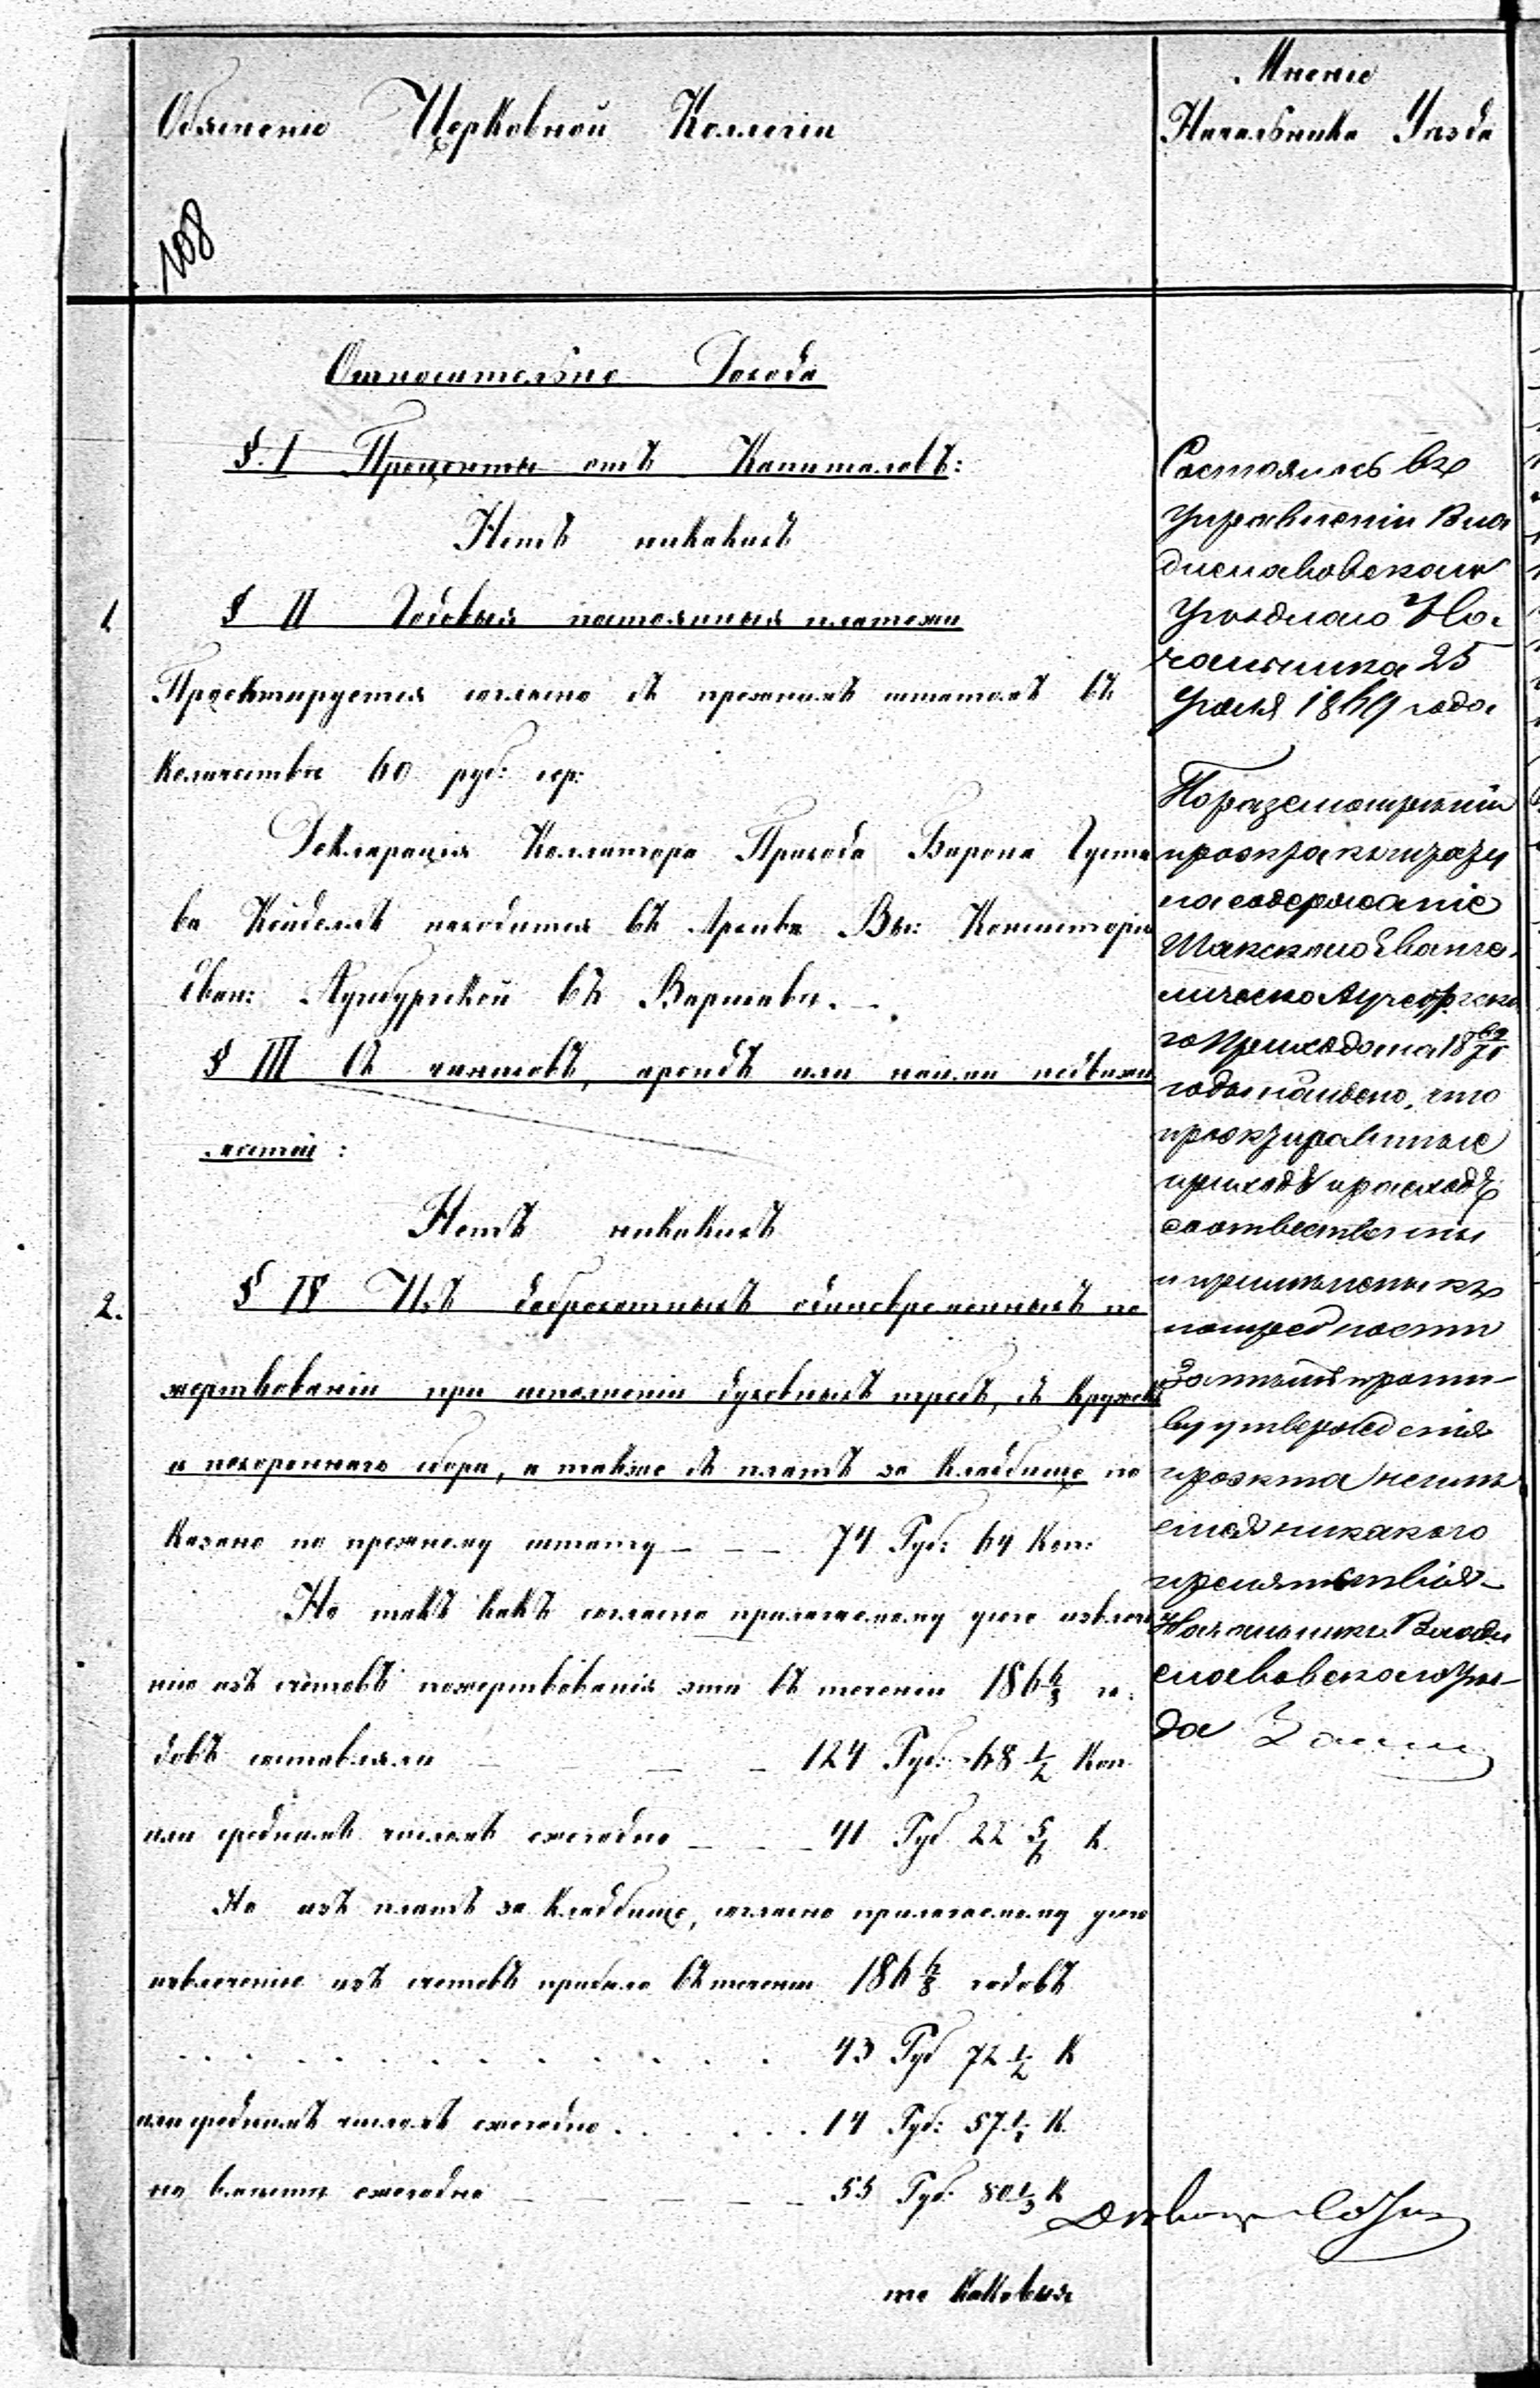 Объясненіе Церковной Коллегіи
Мненіе
Начальника Уезда
108
Относительно Дохода
§. I Проценты отъ Капиталовъ:
Нетъ никакихъ
1. § II Годовыя постоянныя платежи
Проектируется согласно съ прежнимъ штатомъ въ
Количестве 60 руб: сер:
Декларація Коллатора Прихода Барона Густа
ва Кейделъ находится въ Архиве Ев: Консисторіи
Еван: Аугсбургской въ Варшаве.
§ III Съ чиншовъ, арендъ или найма недвижи
мостей:
Нетъ никакихъ
2. § IV Изъ доброхотныхъ единовременныхъ по
жертвованіи при исполненіи духовныхъ требъ, съ Кружекъ
и похороннаго сбора, а также съ платъ за Кладбище по
казано по прежнему штату 74 Руб: 64 Коп:
Но такъ какъ согласно прилагаемому у сего извлече
нію изъ счетовъ пожертвованія эти въ теченіи 186 6/8 го:
довъ составляли 124 Руб: 68 1/2 Коп
или среднимъ числомъ ежегодно 41 Руб 22 5/6 К.
Но изъ платъ за Кладбище, согласно прилагаемому у сего
извлеченіе изъ счетовъ прибыло въ теченіи 186 6/8 годовъ
43 Руб 72 1/2 К
или среднимъ числомъ ежегодно 14 Руб: 57 1/2 К.
но вместе ежегодно 55 Руб: 80 1/3 К
то Каковыя
Состоялось въ
Управленіи Вла
диславовскаго
Уезднаго На-
чальника 25
1869 года
По разсмотреніи
проэкта къ
на содержаніе
Шакскаго Еванге-
лическо Аугсбургска
го Прихода на 18 69/71
годы найдено, что
проэктированные
приходъ и расходъ
соответственны
и применены къ
потребности
За темъ проти-
ву утвержденія
проэкта неиме
ется никакого
препятствія
Начальникъ Влади
славовскаго Уез-
да